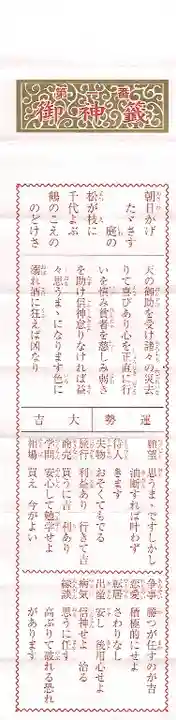 第一番
御神籤
朝日かげ
たゞさす
庭の
松が枝に
千代よぶ
鶴のこえの
のどけさ
天の御助を受け諸々の災去
りて喜びあり心を正直に行
いを慎み貧者を慈しみ弱き
を助け信神怠りなければ益
々思うまゝになります色に
溺れ酒に狂えば凶なり
運勢 大吉
願望 思うまゝですしかし
油断すれば叶わず
待人 きます
失物 おそくてもでる
旅行 利益あり 行きて吉
商売 買うに吉 利あり
学問 安心して勉学せよ
相場 買え 今がよい
争事 勝つが任すのが吉
恋愛 積極的にせよ
転居 さわりなし
出産 安し 後用心せよ
病気 信神せよ 治る
縁談 思うに任す
高ぶりて破れる恐れ
があります